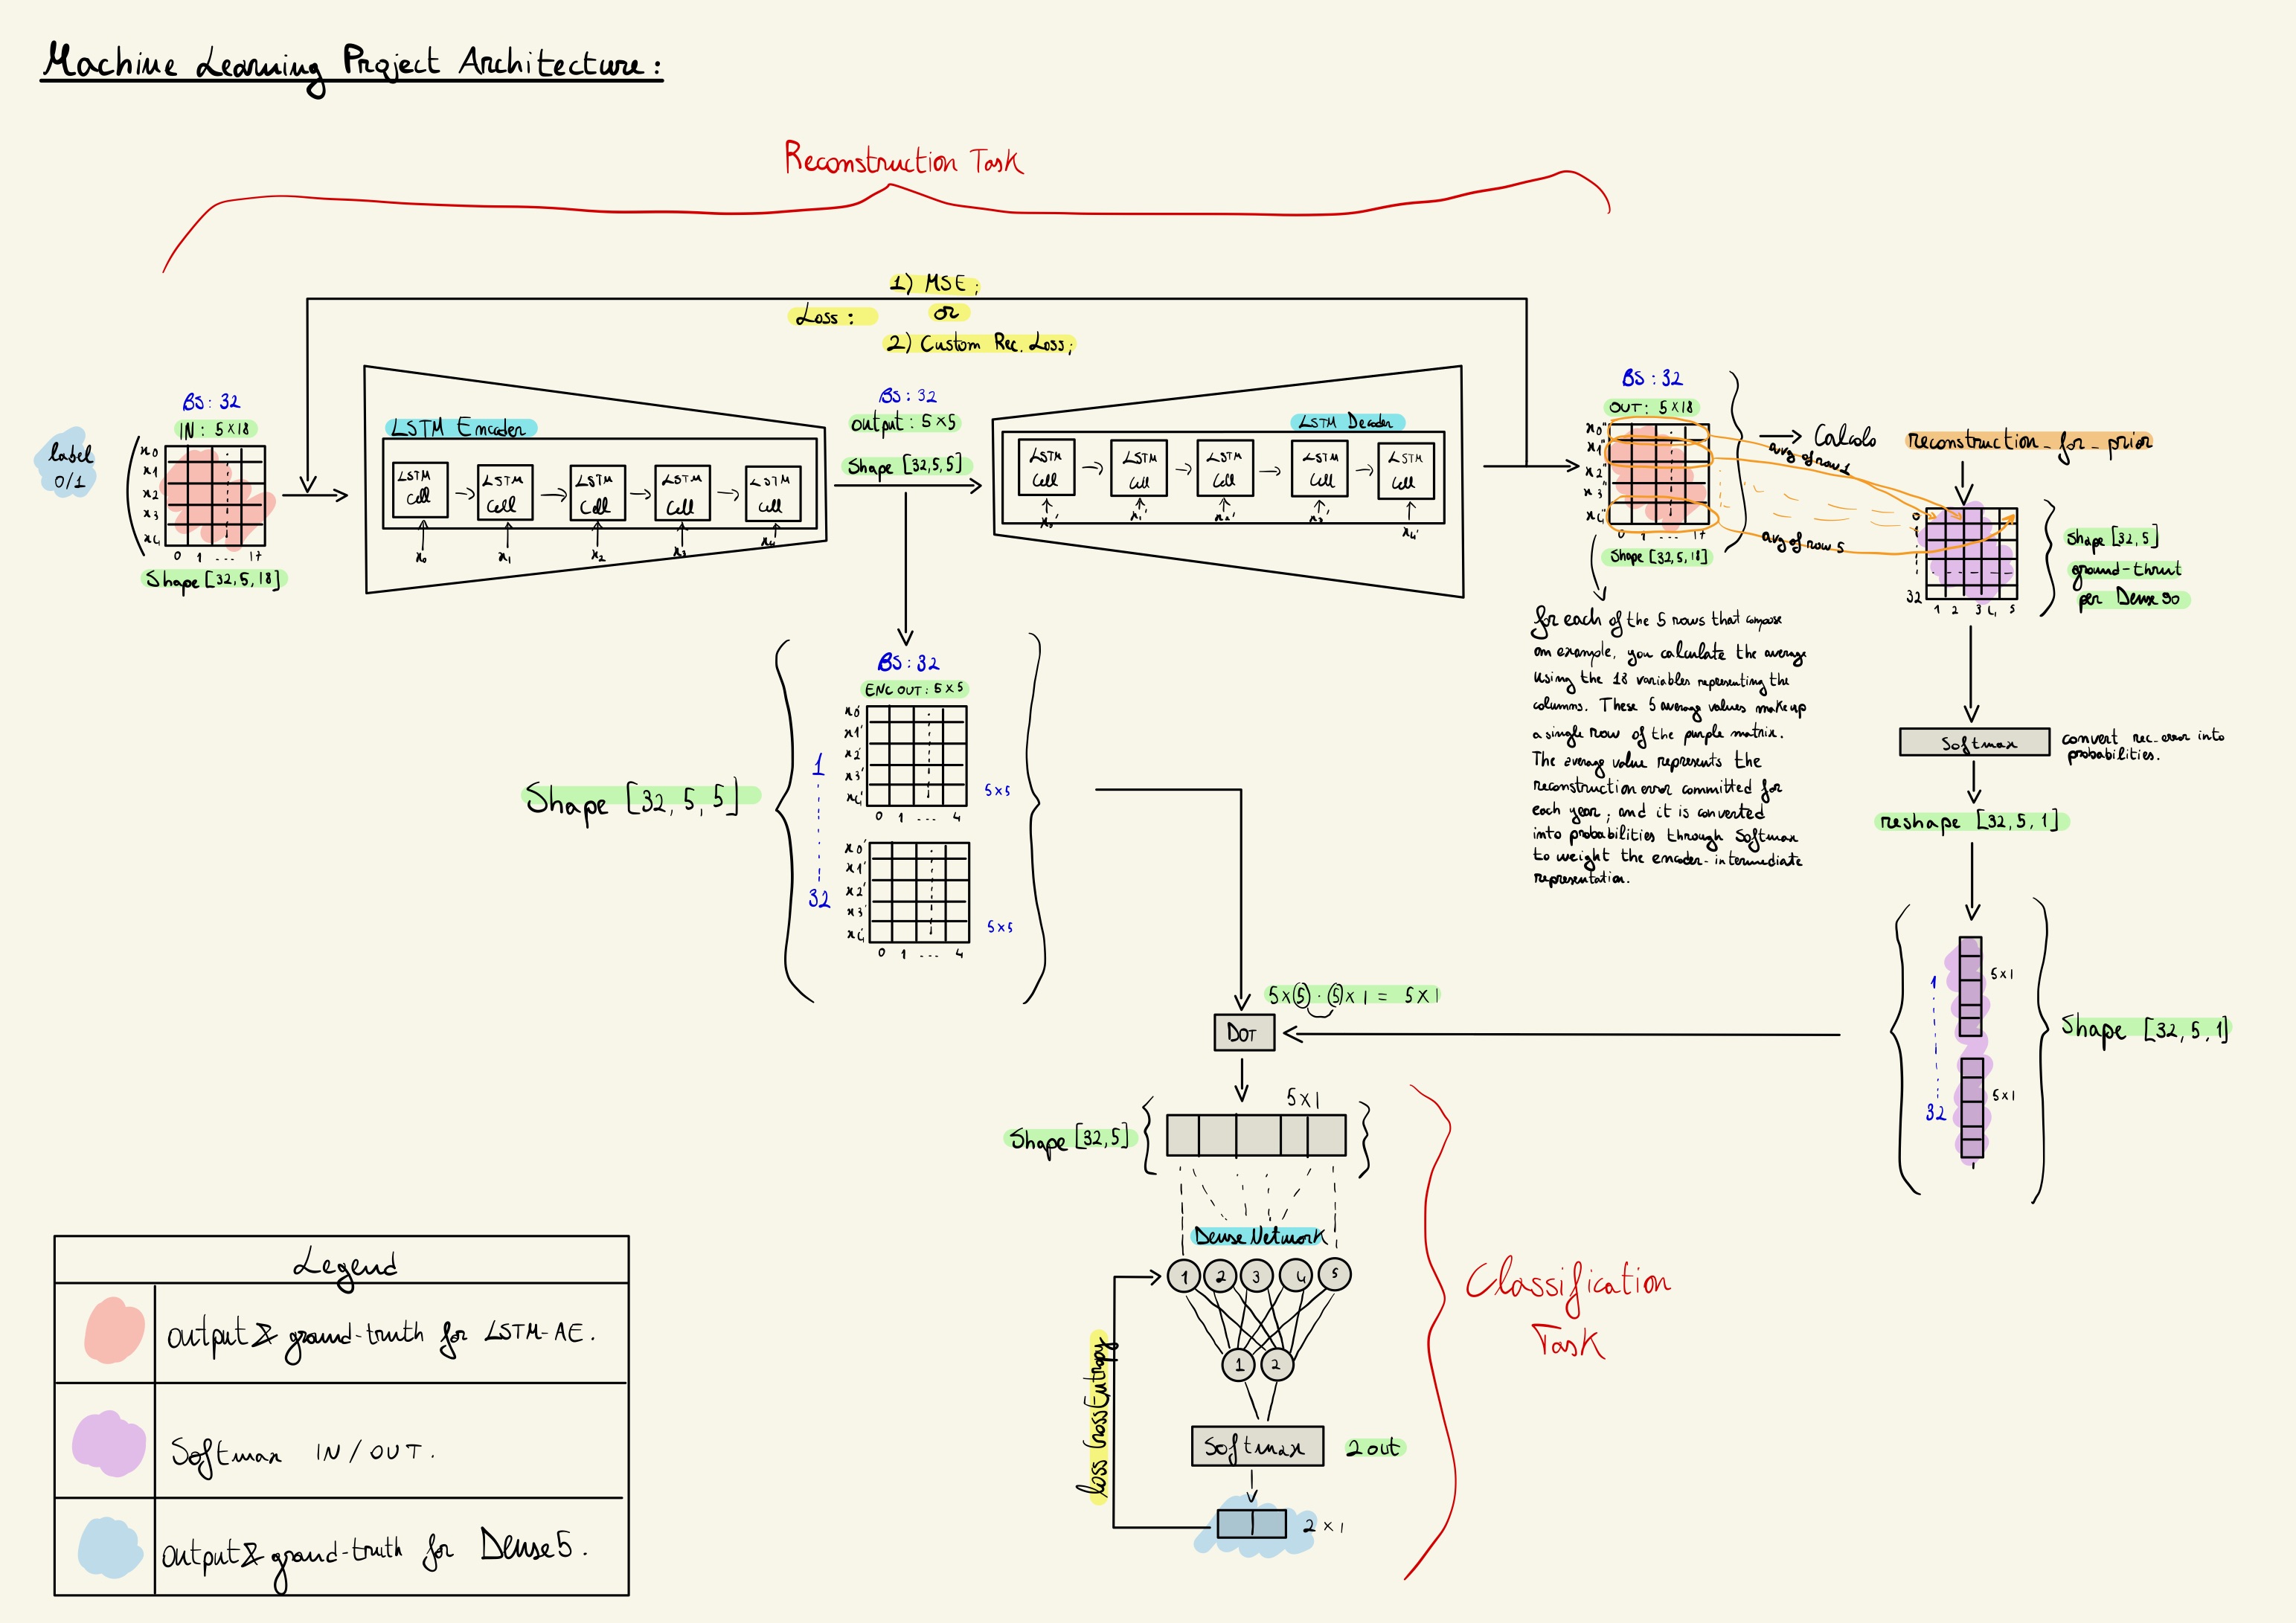 Machine Learning Project Architecture:
Reconstruction Task
1) MSE;
Loss: or
2) Custom Rec. Loss;
label
0/1
BS: 32
IN: 5×18
x0
x1
x2
x3
x4
0 1 ... 17
Shape [32,5,18]
LSTM Encoder
LSTM Cell
LSTM Cell
LSTM Cell
LSTM Cell
LSTM Cell
x0 x1 x2 x3 x4
BS: 32
output: 5×5
Shape [32,5,5]
LSTM Decoder
LSTM Cell
LSTM Cell
LSTM Cell
LSTM Cell
LSTM Cell
x0' x1' x2' x3' x4'
BS: 32
OUT: 5×18
x0''
x1''
x2''
x3''
x4''
0 1 ... 17
Shape [32,5,18]
Calcolo reconstruction_for_prior
avg of row 1
avg of row 5
0
1
32
1 2 3 4 5
Shape [32,5]
ground-thrut
per Dense90
for each of the 5 rows that compose
an example, you calculate the average
using the 18 variables representing the
columns. These 5 average values make up
a single row of the purple matrix.
The average value represents the
reconstruction error committed for
each year, and it is converted
into probabilities through Softmax
to weight the encoder-intermediate
representation.
Softmax
convert rec_error into
probabilities.
reshape [32,5,1]
1
32
5×1
5×1
Shape [32,5,1]
BS: 32
ENC OUT: 5×5
Shape [32,5,5]
1
32
x0'
x1'
x2'
x3'
x4'
0 1 ... 4
5×5
x0'
x1'
x2'
x3'
x4'
0 1 ... 4
5×5
5×5 · 5×1 = 5×1
DOT
5×1
Shape [32,5]
Dense Network
1 2 3 4 5
1 2
loss CrossEntropy
Softmax
2 out
2×1
Classification
Task
Legend
output & ground-truth for LSTM-AE.
Softmax IN/OUT.
output & ground-truth for Dense5.